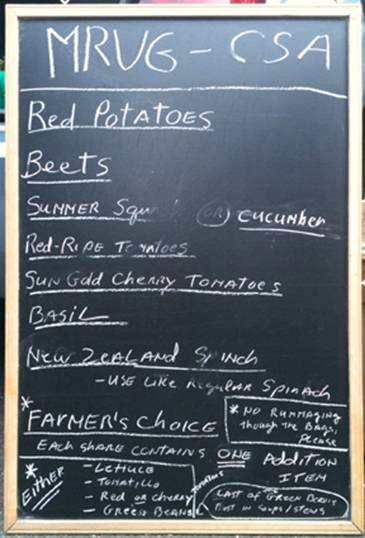 MRUG - CSA
Red Potatoes
Beets
Summer Squ OR cucumber
Red-Ripe Tomatoes
Sun Gold Cherry Tomatoes
Basil
New Zealand Spinch
- Use Like Regular Spinach
* Farmer's Choice
* No Rummaging though the Bags, Please
Each share contains ONE Addition Item
* Either
- Lettuce
- Tomatillo
- Red or Cherry Tomatoes
- Green Beans
Last of the Green
Most in soups/stews